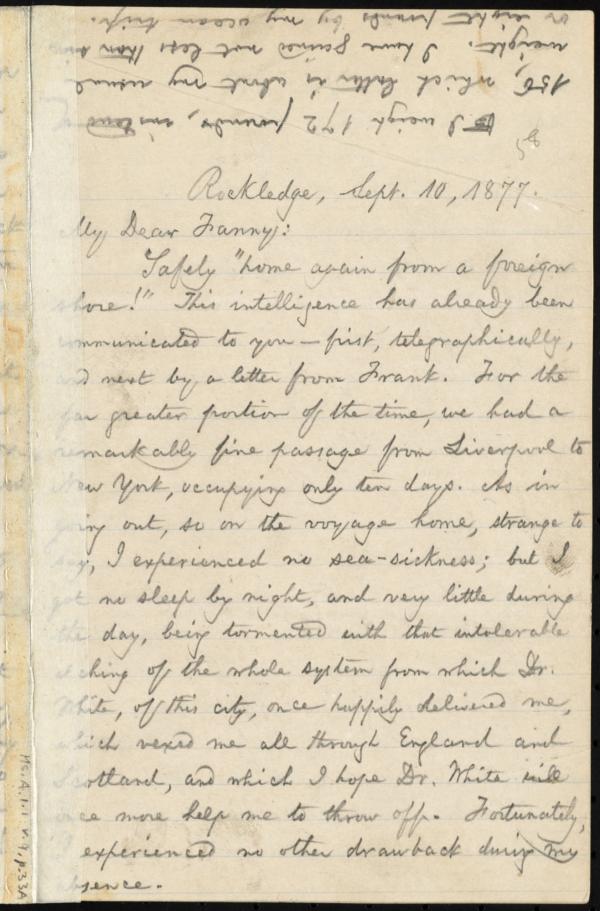 I weigh 172 pounds, instead
156, which latter is about my usual
weight. I have gained not less than six
or eight pounds by my ocean trip.
Rockledge, Sept. 10, 1877.
My Dear Fanny:
Safely "home again from a foreign
shore!" This intelligence has already been
communicated to you — first, telegraphically,
and next by a letter from Frank. For the
far greater portion of the time, we had a
remarkably fine passage from Liverpool to
New York, occupying only ten days. As in
going out, so on the voyage home, strange to
say, I experienced no sea-sickness; but I
got no sleep by night, and very little during
the day, being tormented with that intolerable
itching of the whole system from which Dr.
White, of this city, once happily delivered me,
which vexed me all through England and
Scotland, and which I hope Dr. White will
once more help me to throw off. Fortunately,
I experienced no other drawback during my
absence.
Ms.A.1.1 v.9, p.33A